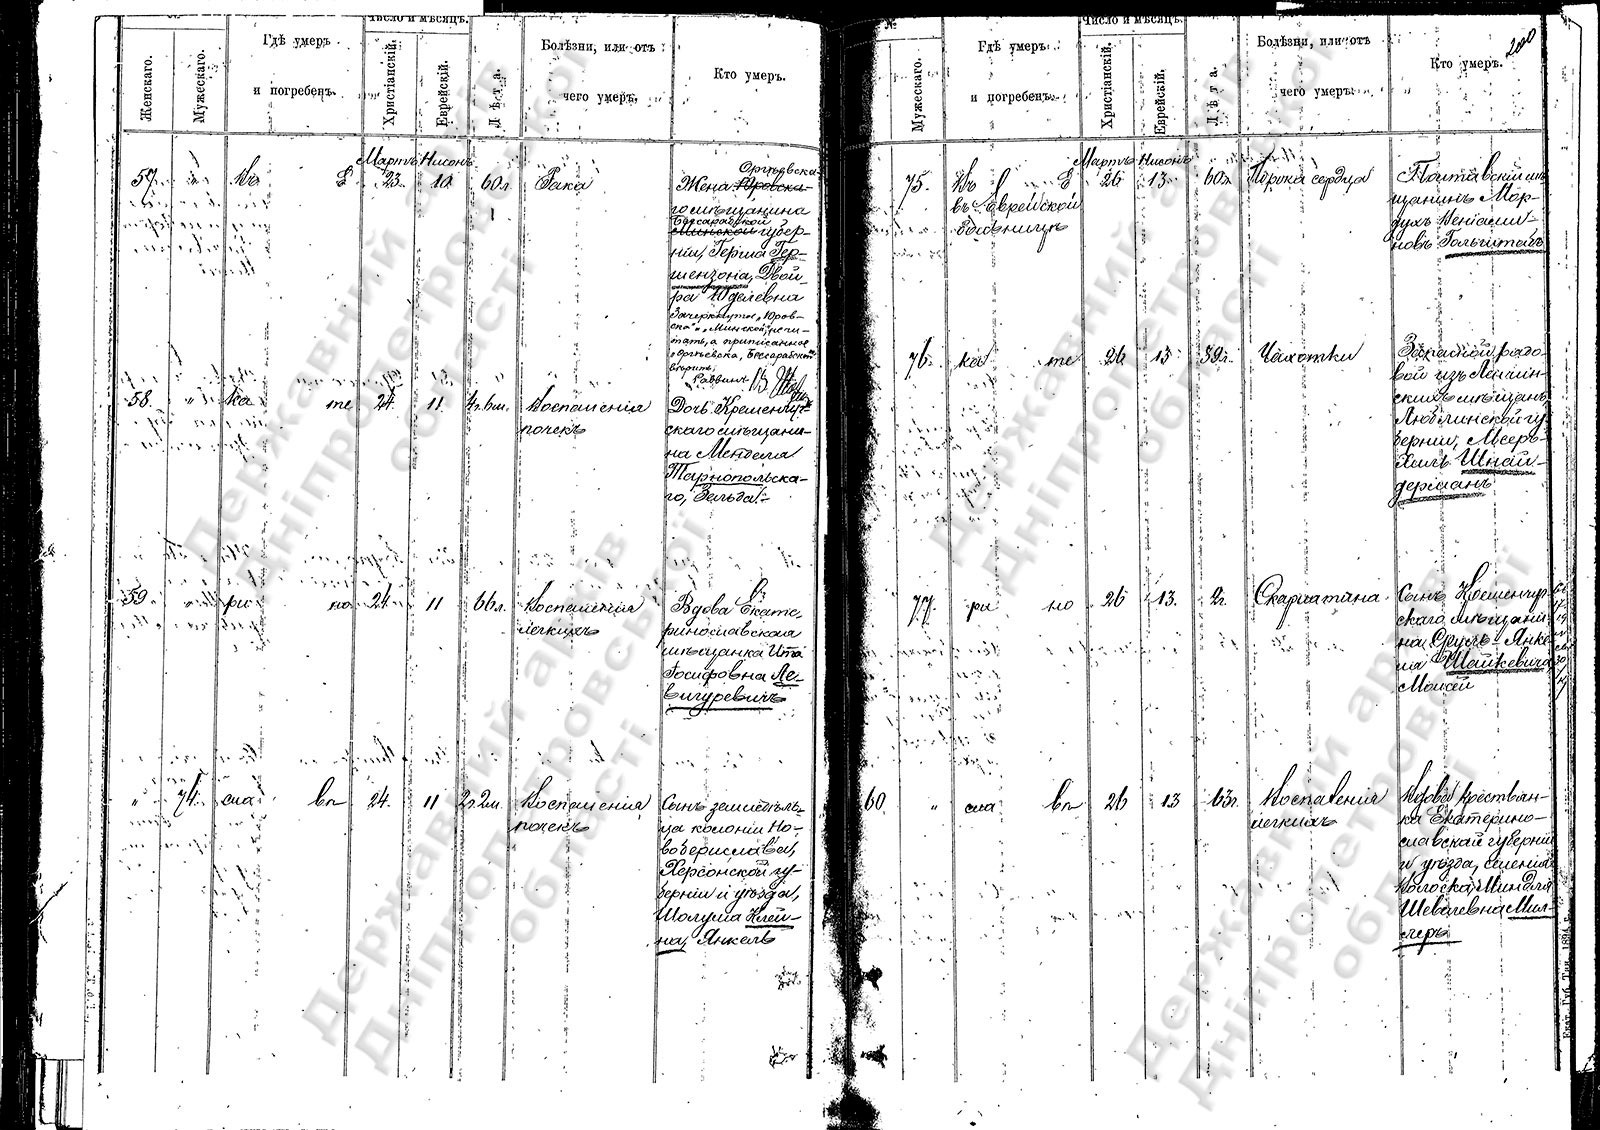 Женскаго.
Мужескаго.
Гдѣ умеръ
и погребенъ.
Число и мѣсяцъ.
Христіанскій.
Еврейскій.
Лѣта.
Болѣзни, или отъ
чего умеръ.
Кто умеръ.
57.
Въ Е
Мартъ Нисонъ
23. 10. 60 л.
Рака
Оргѣевска-
Жена Юровска-
го мѣщанина
Бессарабской
Минской губер-
ніи, Герша Гер-
шензона, Двой-
ра Юделевна
Зачеркнутое „Юров-
ска" „Минской" не чи-
тать, а приписанное
„Оргѣевска, Бессарабской"
вѣрить.
Раввинъ
58. „ ка те 24. 11 4 г. 6 м.
Воспаленія
почекъ
Дочь Кременчуг-
скаго мѣщани-
на Менделя
Тарнопольска-
го, Зельда.
59. „ ри но 24. 11 66 л.
Воспаленія
легкихъ
Вдова Екате-
ринославская
мѣщанка Ита
Іосифовна Ле-
вигуревичъ
„ 74. сла вѣ 24. 11 2 г. 2 м.
Воспаленія
почекъ
Сынъ земледѣль-
ца колоніи Но-
воберислава,
Херсонской гу-
берніи и уѣзда,
Шолума Клей-
на, Янкель
200
Мужескаго.
Гдѣ умеръ
и погребенъ.
Число и мѣсяцъ.
Христіанскій.
Еврейскій.
Лѣта.
Болѣзни, или отъ
чего умеръ.
Кто умеръ.
75. Въ Е
въ Еврейской
больницѣ
Мартъ Нисонъ
26 13. 60 л.
Порока сердца
Полтавскій мѣ-
щанинъ Мор-
духъ Веніами-
новъ Гольштейнъ
76. ка те 26 13 39 л.
Чахотки
Запасной рядо-
вой изъ
скихъ мѣщанъ,
Люблинской гу-
берніи, Мееръ-
Хаимъ Шнай-
дерманъ
77. ри но 26 13. 2 г.
Скарлатина.
Сынъ Кременчуг-
скаго мѣщани-
на Сруль-Янке-
ля Шайкевича,
Моисей
60 „ сла вѣ 26 13 63 г.
Воспаленія
легкихъ
Вдова крестьян-
ка Екатерино-
славской губерніи
и уѣзда, селенія
Миндля
Шевелевна Мил-
леръ
Екат. Губ. Тип. 1894 г.
Державний архів
Дніпропетровської
області
Державний архів
Дніпропетровської
області
Державний архів
Дніпропетровської
області
Державний архів
Дніпропетровської
області